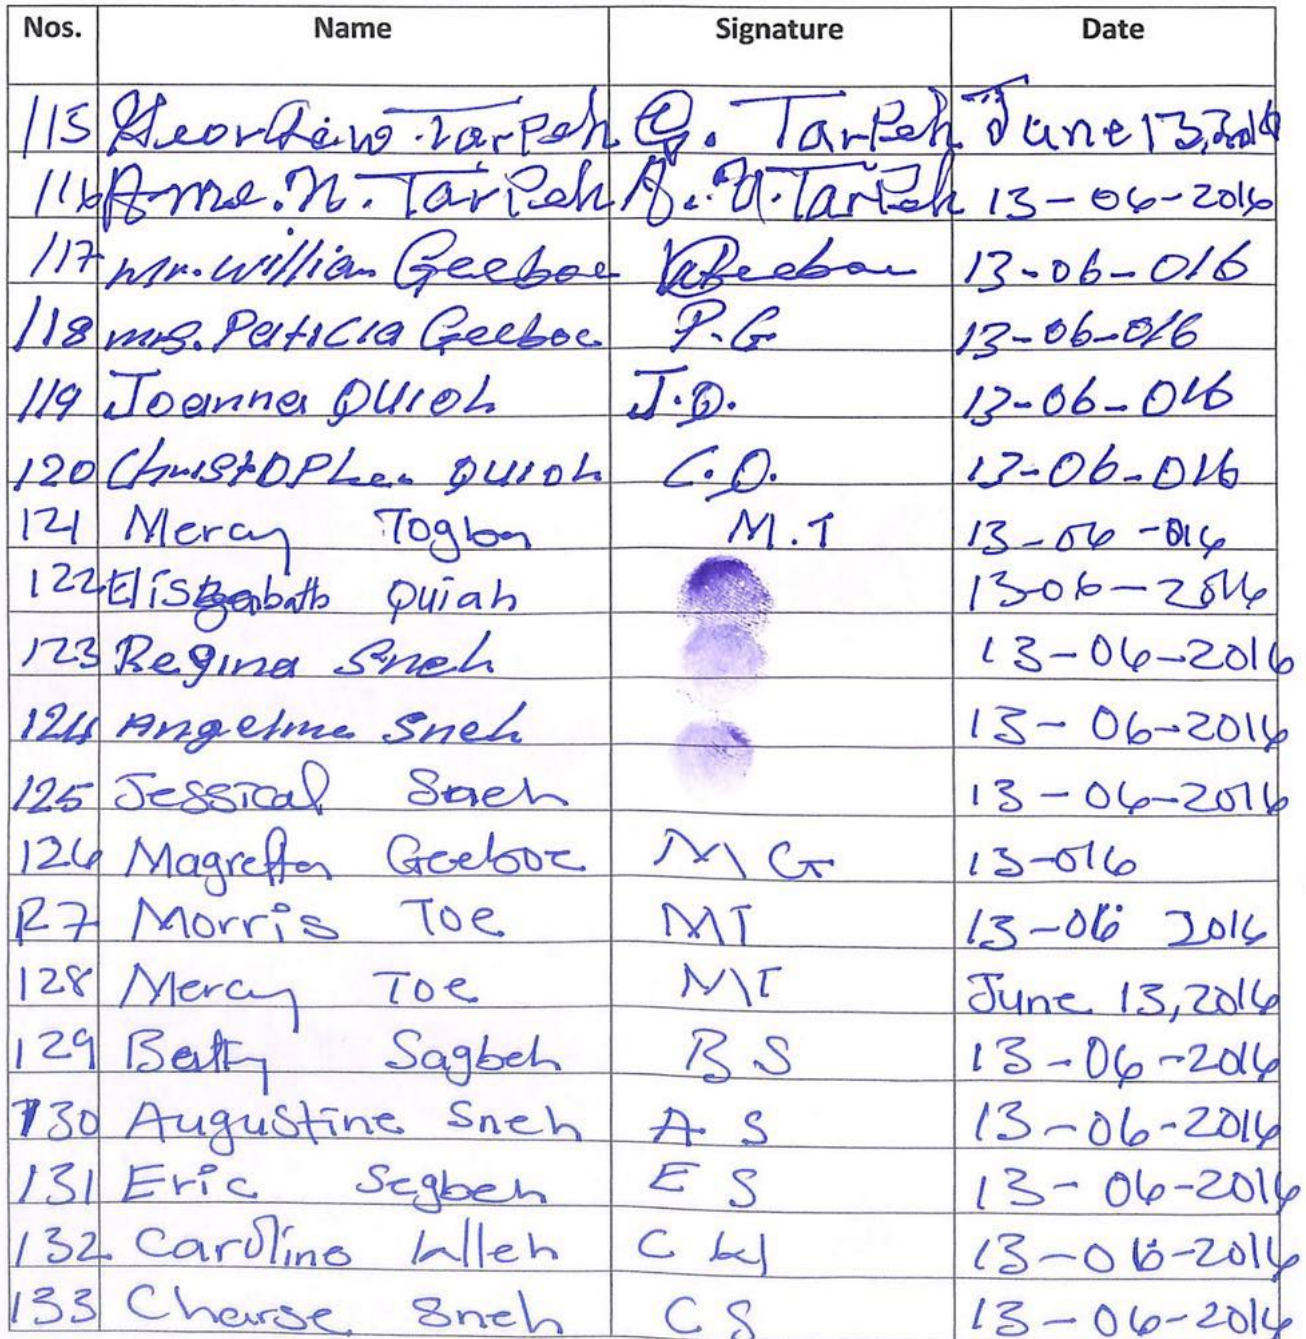 Nos. Name Signature Date
115 Tarpeh G. Tarpeh June 13, 2016
116 N. Tarpeh A. N. Tarpeh 13-06-2016
117 Mr. William Geeboe 13-06-016
118 Mrs. Patricia Geeboe P.G 13-06-016
119 Joanna Quioh J.Q. 13-06-016
120 Christopher Quioh C.Q. 13-06-016
121 Mercy Togba M.T 13-06-016
122 Quiah 13-06-2016
123 Regina Sneh 13-06-2016
124 Angelina Sneh 13-06-2016
125 Jessical Sneh 13-06-2016
126 Magretta Geeboe MG 13-016
127 Morris Toe MT 13-06 2016
128 Mercy Toe MT June 13, 2016
129 Betty Sagbeh BS 13-06-2016
130 Augustine Sneh A S 13-06-2016
131 Eric Segbeh E S 13-06-2016
132 Caroline Wleh C W 13-06-2016
133 Charse Sneh C S 13-06-2016